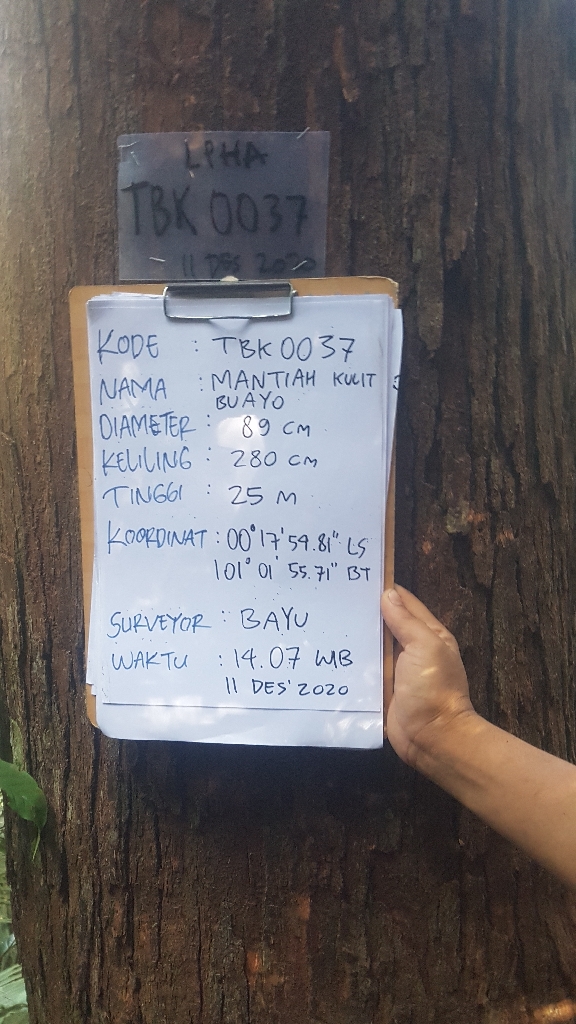 LPHA
TBK 0037
11 DES 2020
KODE : TBK 0037
NAMA : MANTIAH KULIT
BUAYO
DIAMETER : 89 CM
KELILING : 280 CM
TINGGI : 25 M
KOORDINAT : 00° 17' 54.81" LS
101° 01' 55.71" BT
SURVEYOR : BAYU
WAKTU : 14.07 WIB
11 DES' 2020